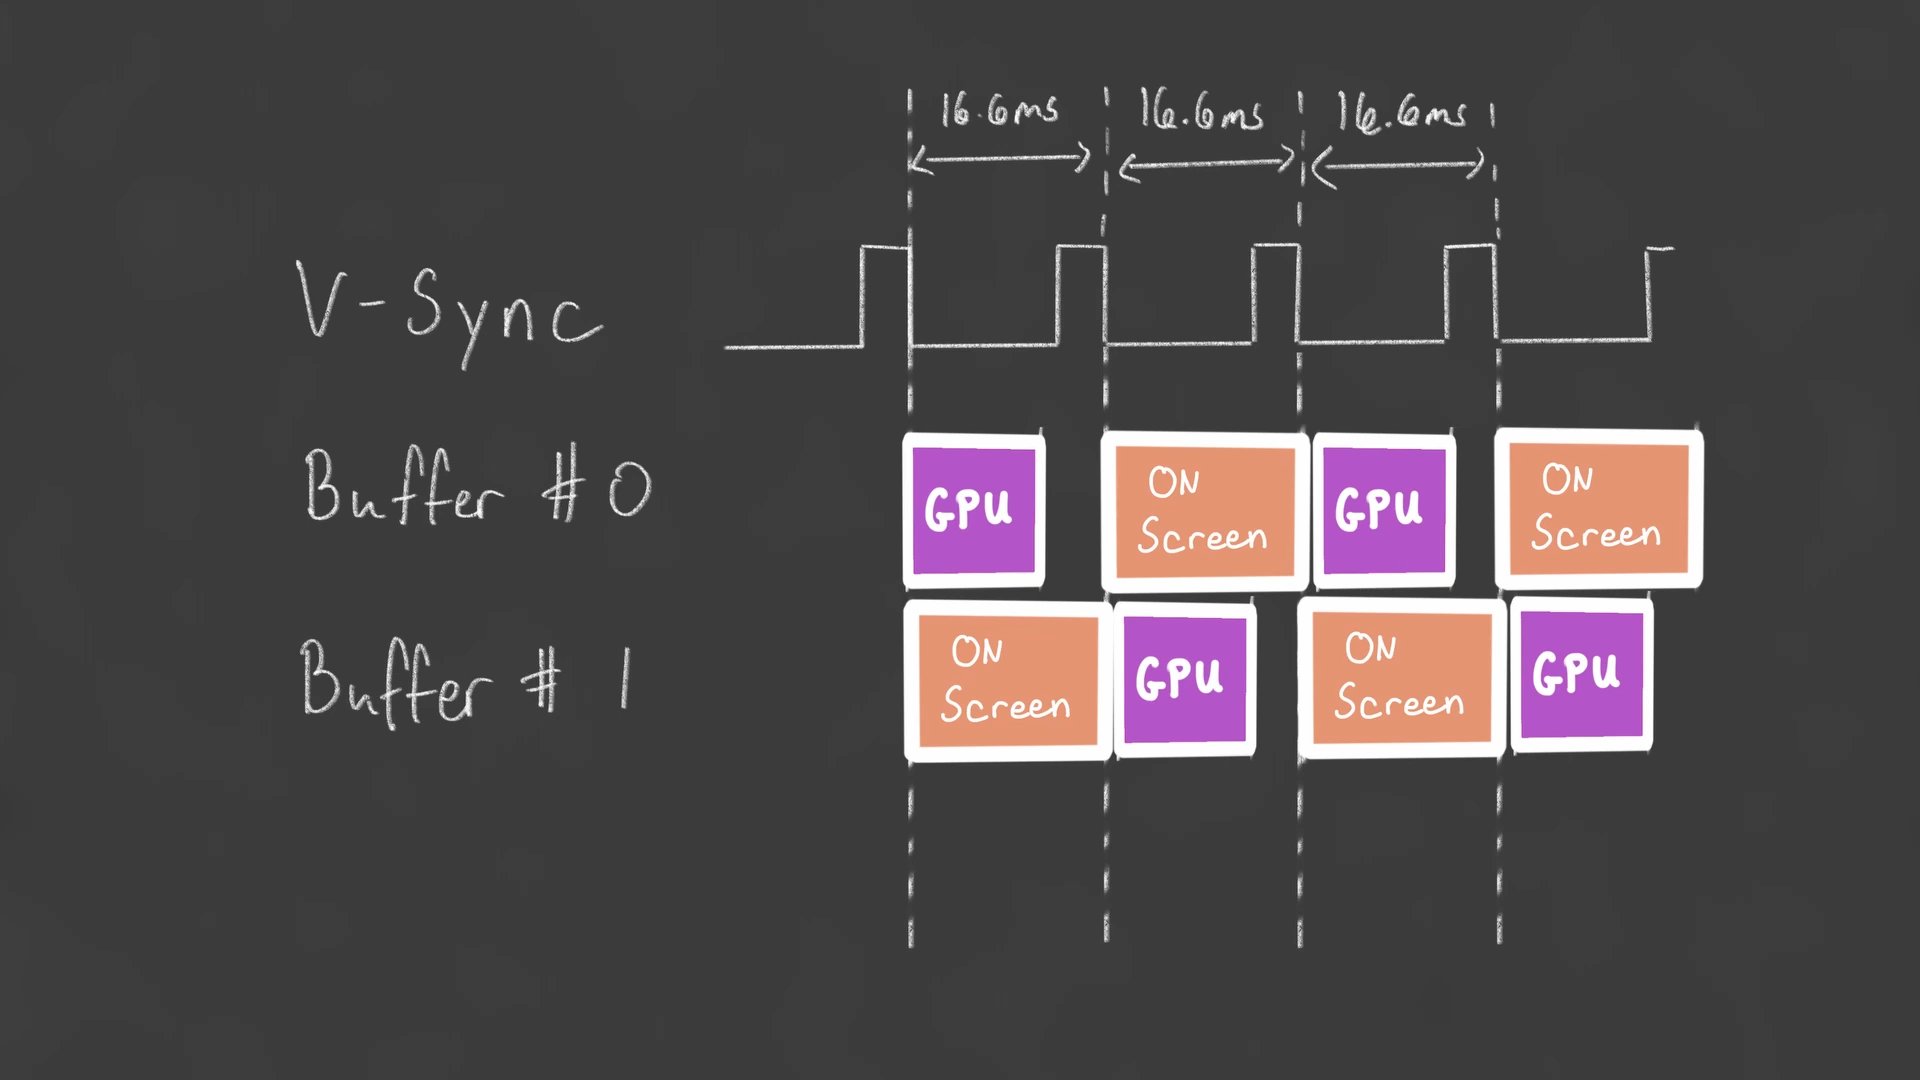 16.6ms 16.6ms 16.6ms
V-Sync
Buffer #0
GPU
ON
Screen
GPU
ON
Screen
Buffer #1
ON
Screen
GPU
ON
Screen
GPU